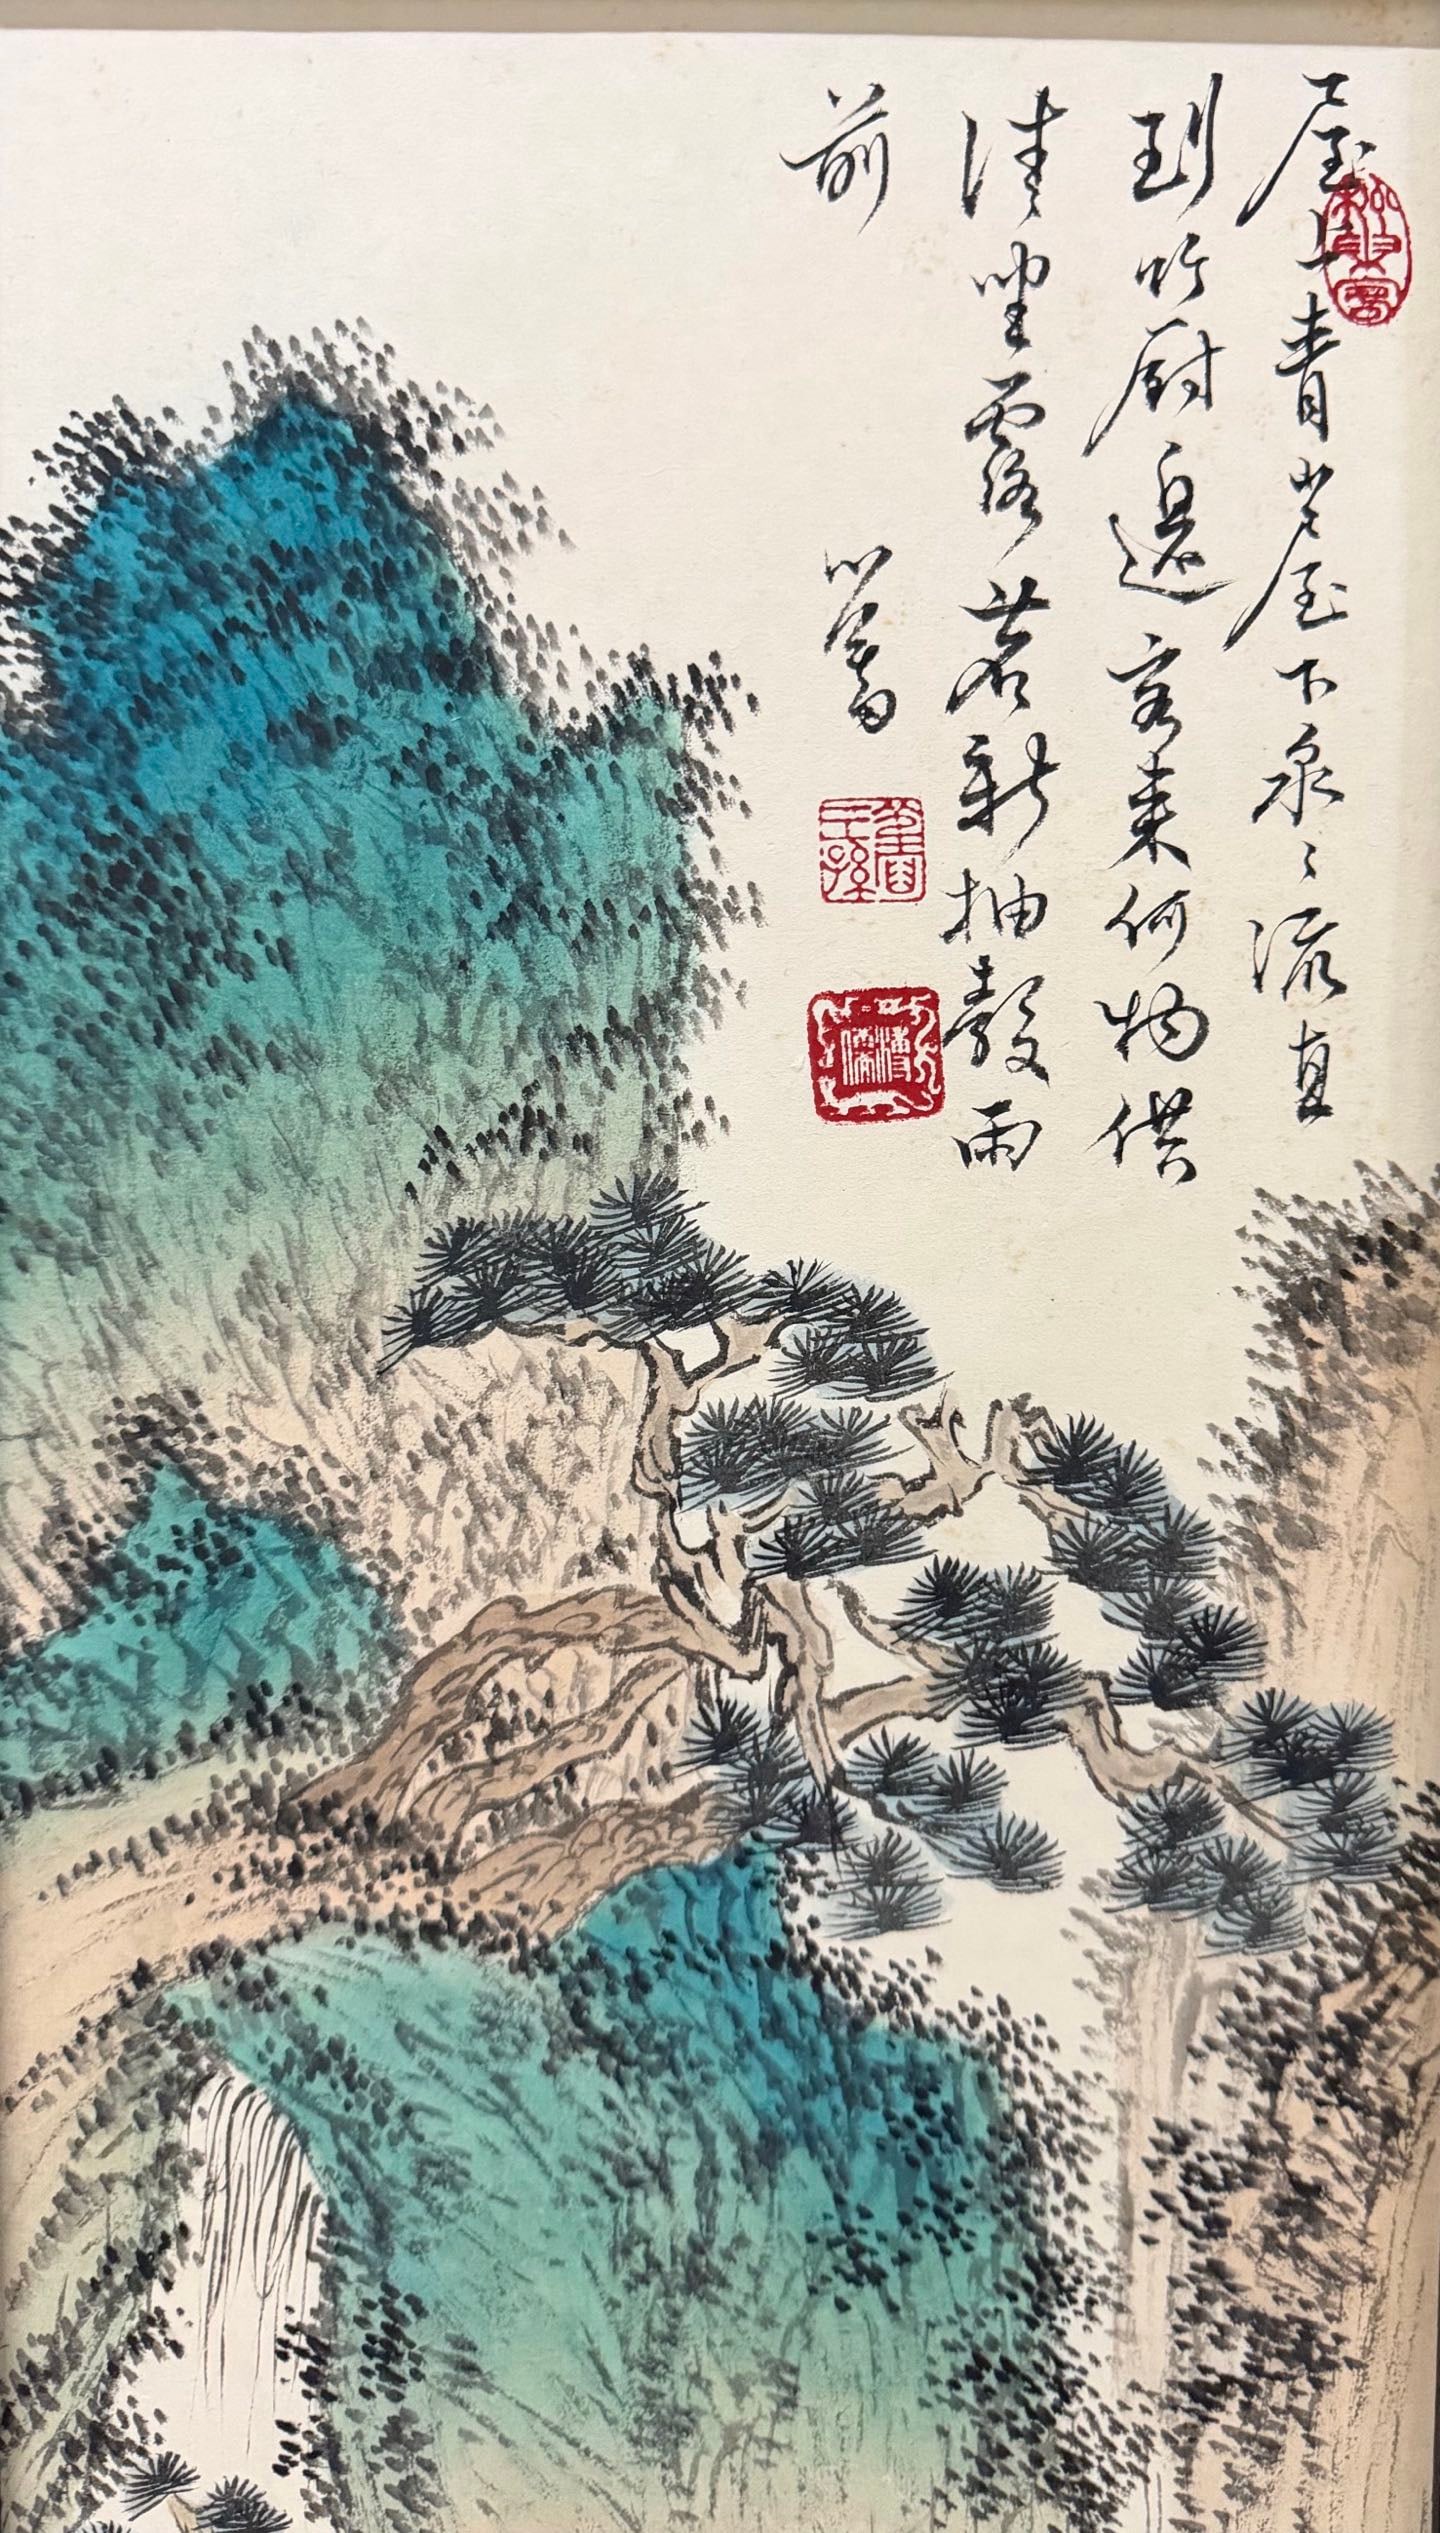 屋上青山屋下泉〻流直
到竹厨邊客來何物供
清坐露茗新抽穀雨
前
心畬
舊王孫
溥儒
松巢客